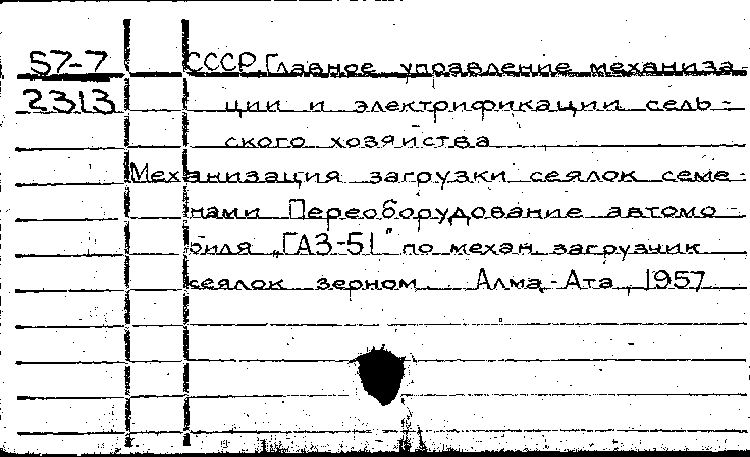 57-7 СССР. Главное управление механиза-
2313 ции и электрификации сель-
ского хозяйства
Механизация загрузки сеялок семе-
нами Переоборудование автомо-
биля „ГАЗ-51" по механ. загрузчик
сеялок зерном. Алма-Ата, 1957